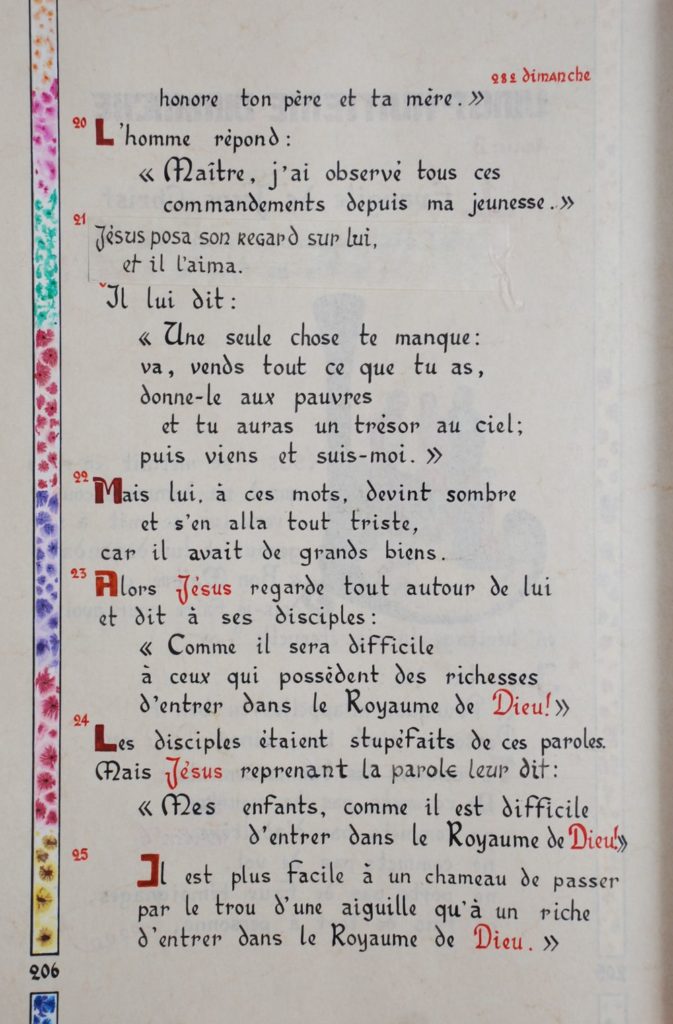 282 dimanche
honore ton père et ta mère. »
20 L'homme répond :
« Maître, j'ai observé tous ces
commandements depuis ma jeunesse. »
21 Jésus posa son regard sur lui,
et il l'aima.
Il lui dit :
« Une seule chose te manque :
va, vends tout ce que tu as,
donne-le aux pauvres
et tu auras un trésor au ciel ;
puis viens et suis-moi. »
22 Mais lui, à ces mots, devint sombre
et s'en alla tout triste,
car il avait de grands biens.
23 Alors Jésus regarde tout autour de lui
et dit à ses disciples :
« Comme il sera difficile
à ceux qui possèdent des richesses
d'entrer dans le Royaume de Dieu! »
24 Les disciples étaient stupéfaits de ces paroles.
Mais Jésus reprenant la parole leur dit :
« Mes enfants, comme il est difficile
d'entrer dans le Royaume de Dieu! »
25 Il est plus facile à un chameau de passer
par le trou d'une aiguille qu'à un riche
d'entrer dans le Royaume de Dieu. »
206